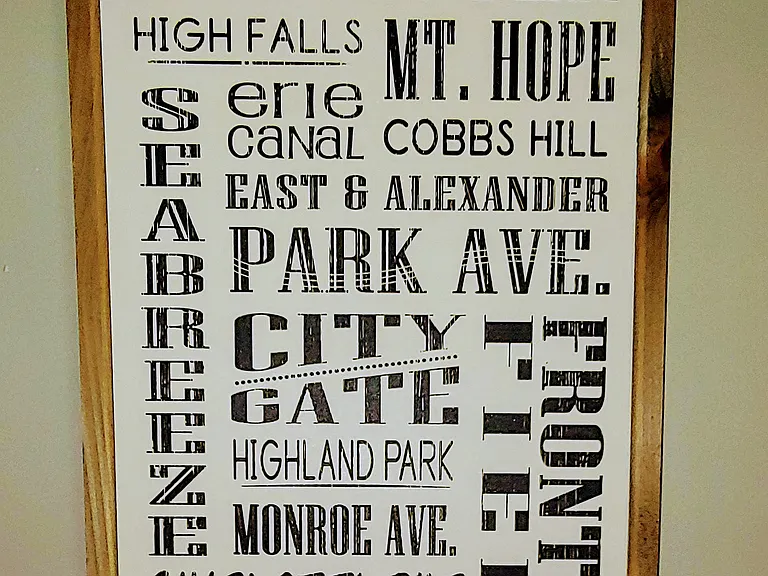 HIGH FALLS
MT. HOPE
SEABREEZE
erie
canal
COBBS HILL
EAST & ALEXANDER
PARK AVE.
CITY
GATE
FRONT
HIGHLAND PARK
MONROE AVE.